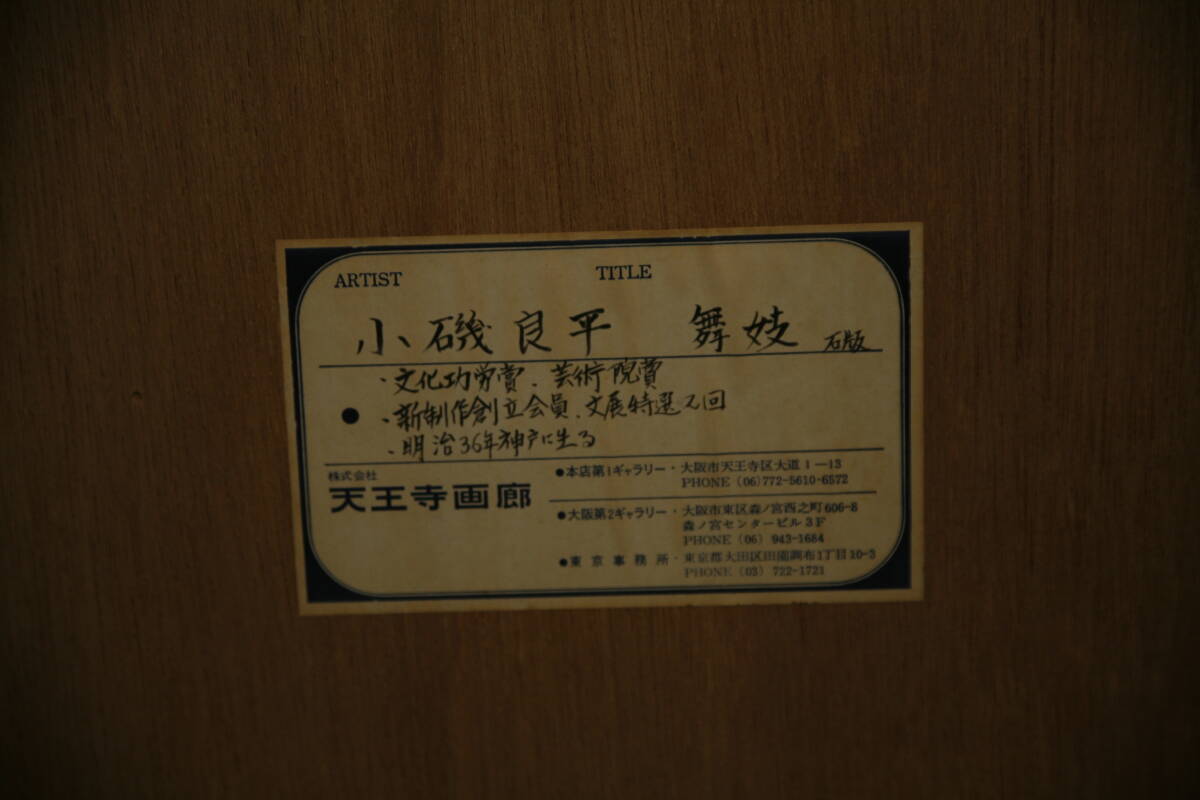 ARTIST TITLE
小磯良平 舞妓 石版
・文化功労賞、芸術院賞
・新制作創立会員、文展特選又回
・明治36年神戸に生る
株式会社
天王寺画廊
●本店第1ギャラリー・大阪市天王寺区大道1—13
PHONE (06)772-5610・6572
●大阪第2ギャラリー・大阪市東区森ノ宮西之町606-8
森ノ宮センタービル3F
PHONE (06) 943-1684
●東京事務所・東京都大田区田園調布1丁目10-3
PHONE (03) 722-1721